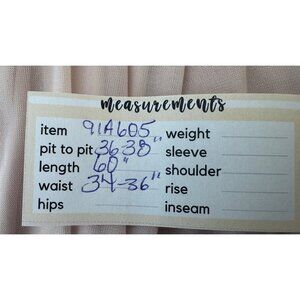 measurements
item 91A605
pit to pit 36-38"
length 60"
waist 34-36"
hips
weight
sleeve
shoulder
rise
inseam